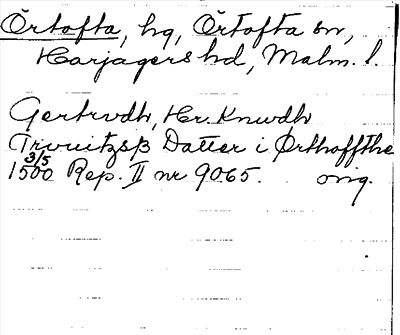 Örtofta, hg, Örtofta sn,
Harjagers hd, Malm. l.
Gertrvdh, Hr. Knwdh
Trvuitzsß Datter i Ørthoffthe
1500 3/5 Rep. II nr 9065. orig.